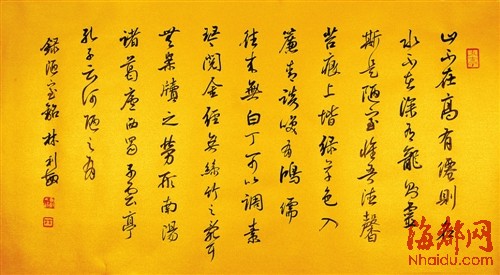 山不在高有僊則名
水不在深有龍則靈
斯是陋室惟吾德馨
苔痕上堦綠草色入
簾青談笑有鴻儒
往來無白丁可以調素
琴閱金經無絲竹之亂耳
無案牘之勞形南陽
諸葛廬西蜀子雲亭
孔子云何陋之有
錄陋室銘 林利敏
海都网
Nhaidu.com